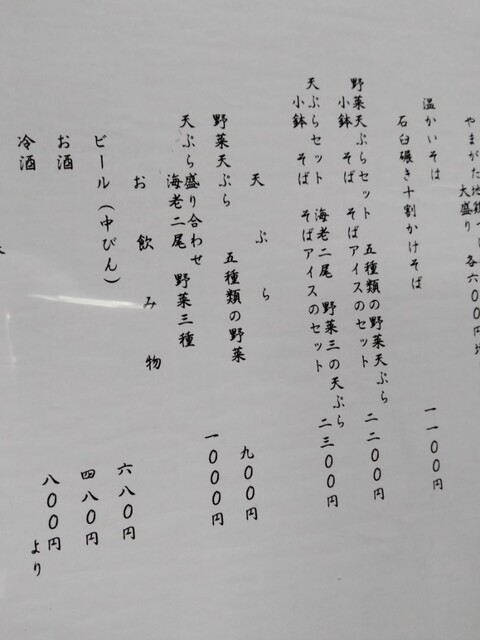 大盛り 各六〇〇円
温かいそば
石臼碾き十割かけそば 一一〇〇円
野菜天ぷらセット 五種類の野菜天ぷら
小鉢 そば そばアイスのセット 二二〇〇円
天ぷらセット 海老二尾 野菜三の天ぷら
小鉢 そば そばアイスのセット 二三〇〇円
天ぷら
野菜天ぷら 五種類の野菜 九〇〇円
天ぷら盛り合わせ 一〇〇〇円
海老二尾 野菜三種
お飲み物
ビール(中びん) 六八〇円
お酒 四八〇円
冷酒 八〇〇円より